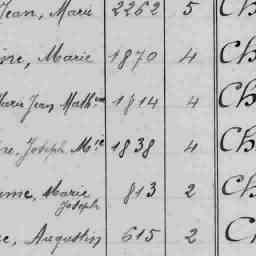 Jean, Marie 2262 5 Ch
ine, Marie 1870 4 Ch
Marie Jean Math 1814 4 Ch
ne, Joseph Mie 1838 4 Ch
ume, Marie Joseph 813 2 Ch
e, Augustin 615 2 C